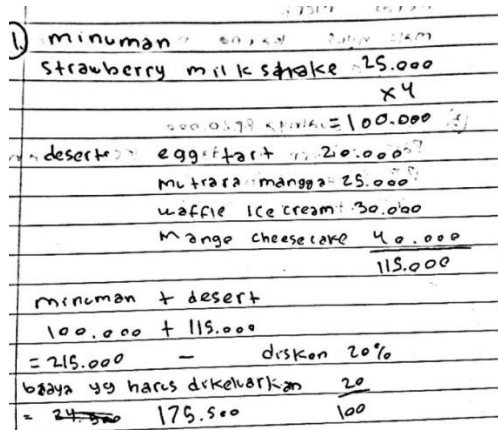 1. minuman
strawberry milk shake 25.000
x4
= 100.000
desert egg tart 20.000
mutiara mangga 25.000
waffle Ice cream 30.000
Mango cheese cake 40.000
115.000
minuman + desert
100.000 + 115.000
= 215.000 - diskon 20%
biaya yg harus dikeluarkan 20
= 175.500 100